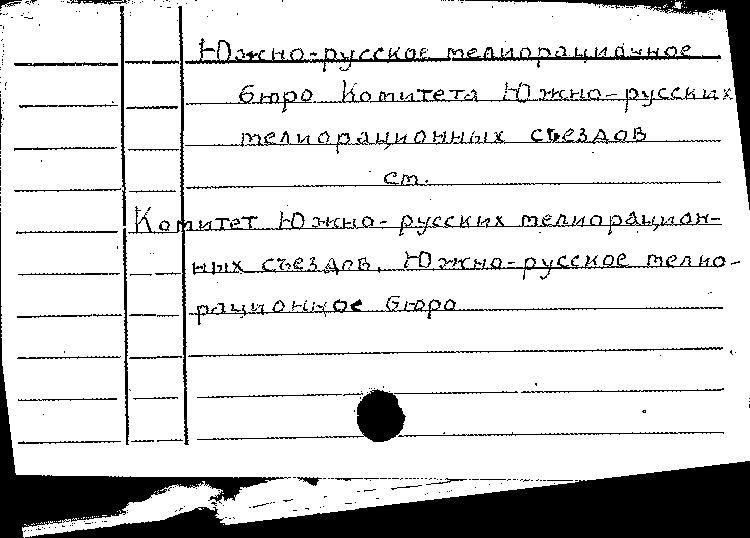 Южно-русское мелиорационное
бюро Комитета Южно-русских
мелиорационных съездов
см.
Комитет Южно-русских мелиорацион-
ных съездов. Южно-русское мелио-
рационное бюро